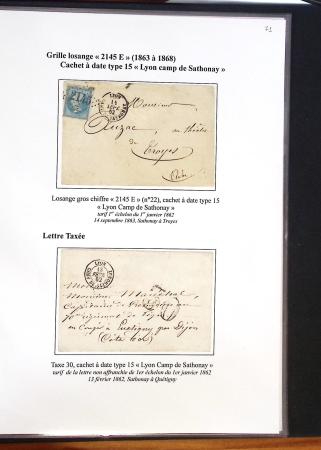 71
Grille losange « 2145 E » (1863 à 1868)
Cachet à date type 15 « Lyon camp de Sathonay »
Monsieur
Auzac, au théâtre
de Troyes
Aube
Losange gros chiffre « 2145 E » (n°22), cachet à date type 15
« Lyon Camp de Sathonay »
tarif 1er échelon du 1er janvier 1862
14 septembre 1863, Sathonay à Troyes
Lettre Taxée
LYON
Monsieur Maréchal,
Capitaine
en Congé à Quetigny par Dijon
(Côte d'or)
Taxe 30, cachet à date type 15 « Lyon Camp de Sathonay »
tarif de la lettre non affranchie de 1er échelon du 1er janvier 1862
13 février 1862, Sathonay à Quétigny